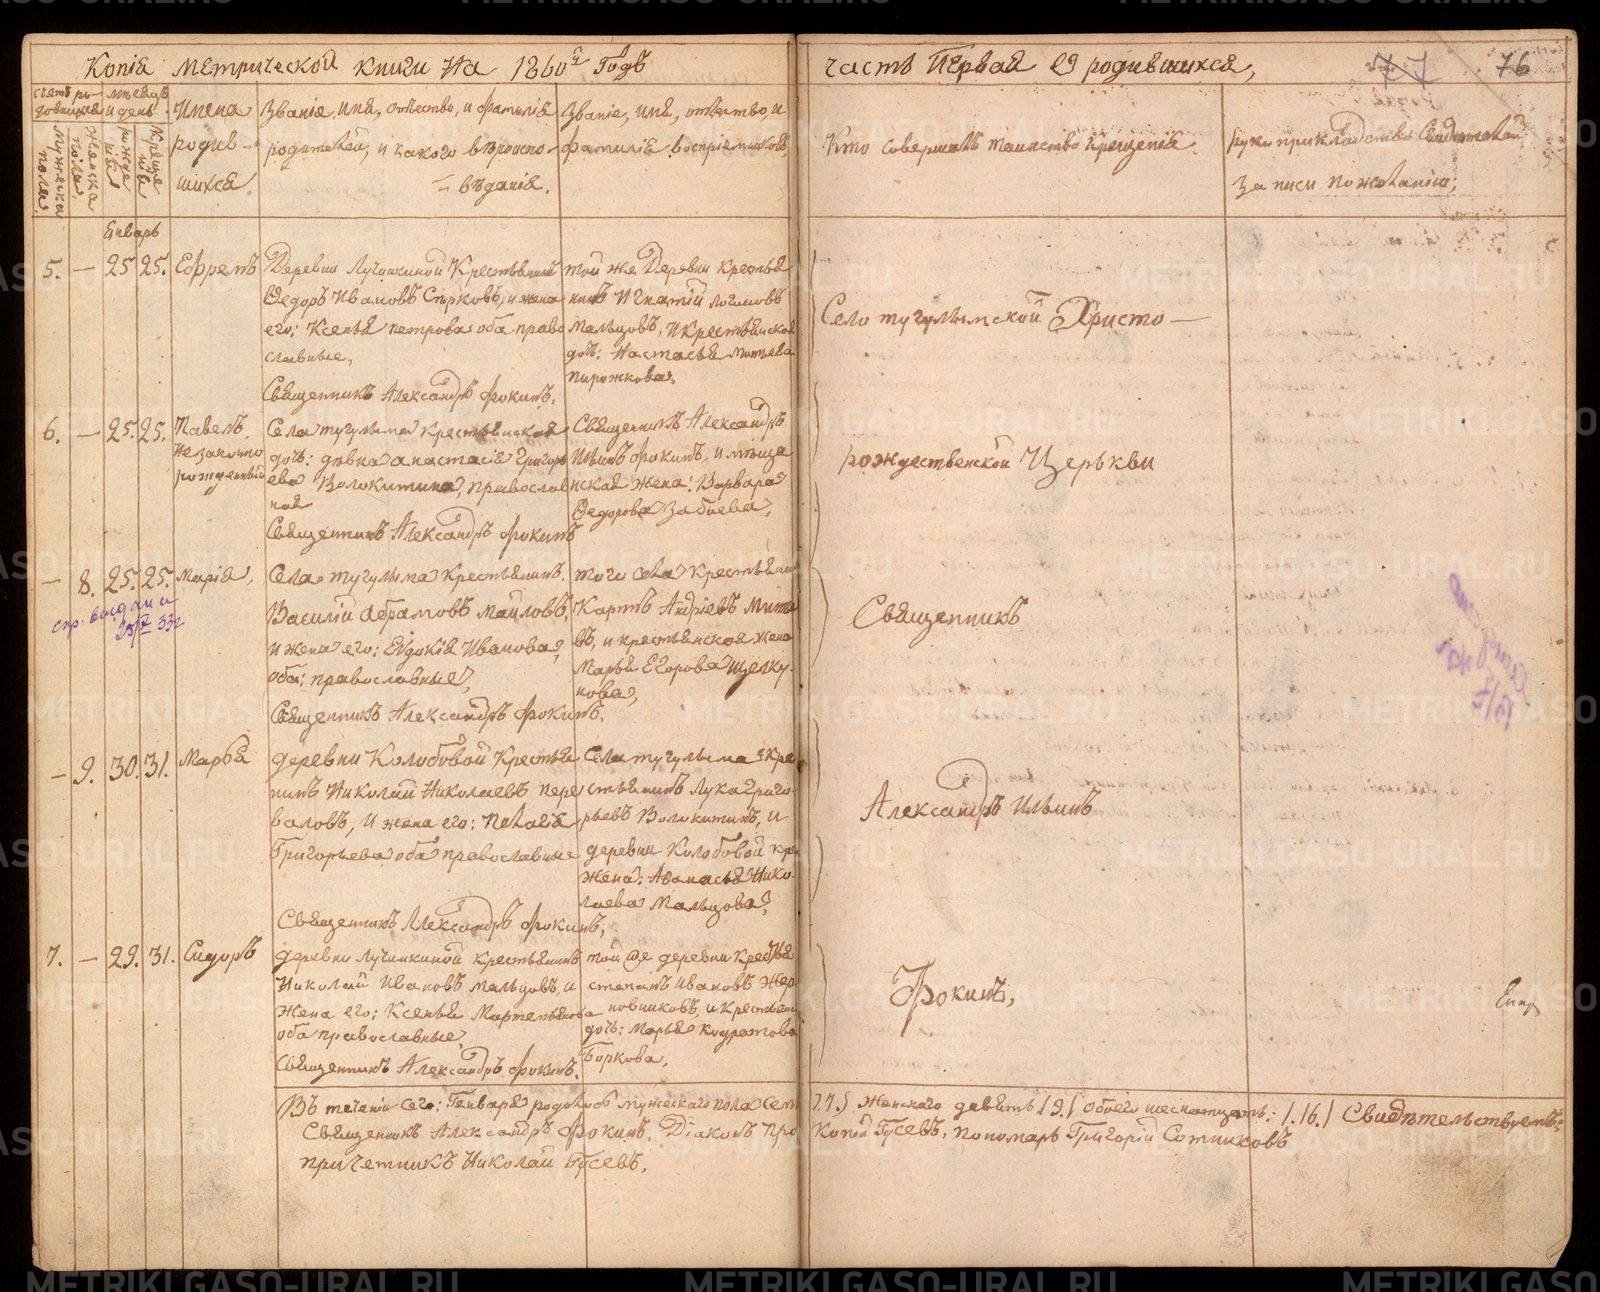 Копія метрической книги На 1860й Годъ
часть Первая о родившихся,
77 76
счетъ ро-
довшихся
мѣсяцъ
и день
Мужеска
пола.
Женска
пола,
рожде
нія
Креще
нія
Имена
родив-
шихся.
Званіе, имя, отчество, и фамилія
родителей, и какого вѣроиспо-
вѣданія.
Званіе, имя, отчество, и
фамилія воспріемниковъ,
Кто совершалъ таинство крещенія.
рукоприкладство Свидѣтелей
записи по желанію,
Январь
5. — 25 25. Ефремъ
Деревни Лучинкиной Крестьянинъ
Ѳедоръ Ивановъ Сѣрковъ, и жена
его: Ксенья петрова оба право
славные,
Священникъ Александръ Фокинъ,
той же Деревни крестья
нинъ Игнатій логиновъ
Мальцовъ, И крестьянская
дочь: Настасья
Пирожкова,
6. — 25. 25. Павелъ,
Незаконно
рожденный
Села тугулыма крестьянская
дочь: дѣвка анастасія Григорь
ева Волокитина, православ
ная
Священникъ Александръ Фокинъ
Священникъ Александръ
Ильинъ Фокинъ, и мѣща
нская жена: Варвара
Ѳедорова Забоева,
— 8. 25. 25. Марія,
спр. выдана
Села тугулыма Крестьянинъ,
Василій Абрамовъ Маиловъ,
и жена его: Евдокія Иванова,
оба: православные,
Священникъ Александръ Фокинъ.
того села Крестьянин
Карпъ Андріевъ
въ, и крестьянская жена
Марья Егорова Щелку-
нова,
— 9. 30. 31. Марья
деревни Колобовой Крестья
нинъ Николай Николаевъ пере
валовъ, И жена его: Пелагія
Григорьева оба православные
Священникъ Александръ Фокинъ,
Села тугулыма Кре
стьянинъ Лука Григо
рьевъ Волокитинъ, и
деревни Колобовой кре
жена: Афанасья Нико-
лаева Мальцова,
7. — 29. 31. Сидоръ
деревни Лучинкиной крестьянинъ
Николай Ивановъ мальцовъ, и
жена его: Ксенья Мартемьянова
оба православные,
Священникъ Александръ Фокинъ.
той же деревни Крестья
степанъ Ивановъ Жер
новниковъ, и Крестьян
дочь: Марья кодратова
Боркова,
Село тугулымской Христо —
рождественской Церькви
Священникъ
Александръ Ильинъ
Фокинъ,
Въ теченіи сего: Генваря родилось мужескаго пола семь
/.7./ женскаго девять /9./ обоего шеснатцать: /.16./ Свидѣтельствуемъ:
Священникъ Александръ Фокинъ, Діаконъ Про
копій Гусевъ, Пономарь Григорій Сотниковъ
причетникъ Николай Гусевъ,
METRIKI.GASO-URAL.RU